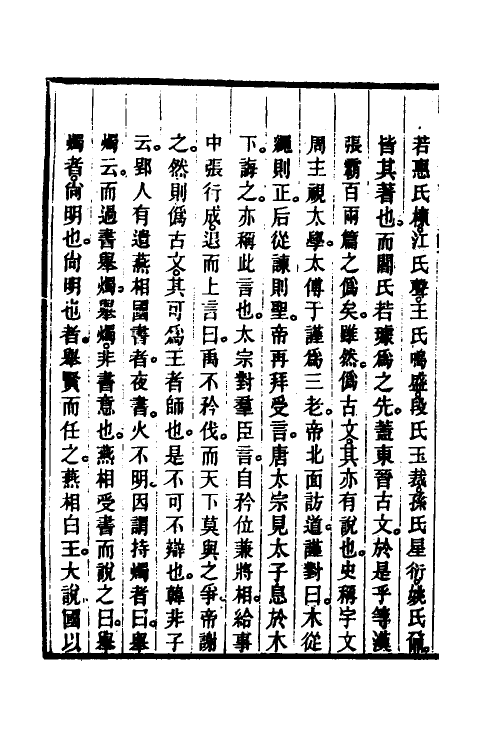 若惠氏棟江氏聲王氏鳴盛段氏玉裁孫氏星衍姚氏鼐
皆其著也而閻氏若璩爲之先蓋東晉古文於是乎等漢
張霸百兩篇之僞矣雖然僞古文其亦有說也史稱宇文
周主視太學太傅于謹爲三老帝北面訪道謹對曰木從
繩則正后從諫則聖帝再拜受言唐太宗見太子息於木
下誨之亦稱此言也太宗對羣臣言自矜位兼將相給事
中張行成退而上言曰禹不矜伐而天下莫與之爭帝謝
之然則僞古文其可爲王者師也是不可不辯也韓非子
云郢人有遺燕相國書者夜書火不明因謂持燭者曰舉
燭云而過書舉燭舉燭非書意也燕相受書而說之曰舉
燭者尙明也尙明也者舉賢而任之燕相白王大說國以